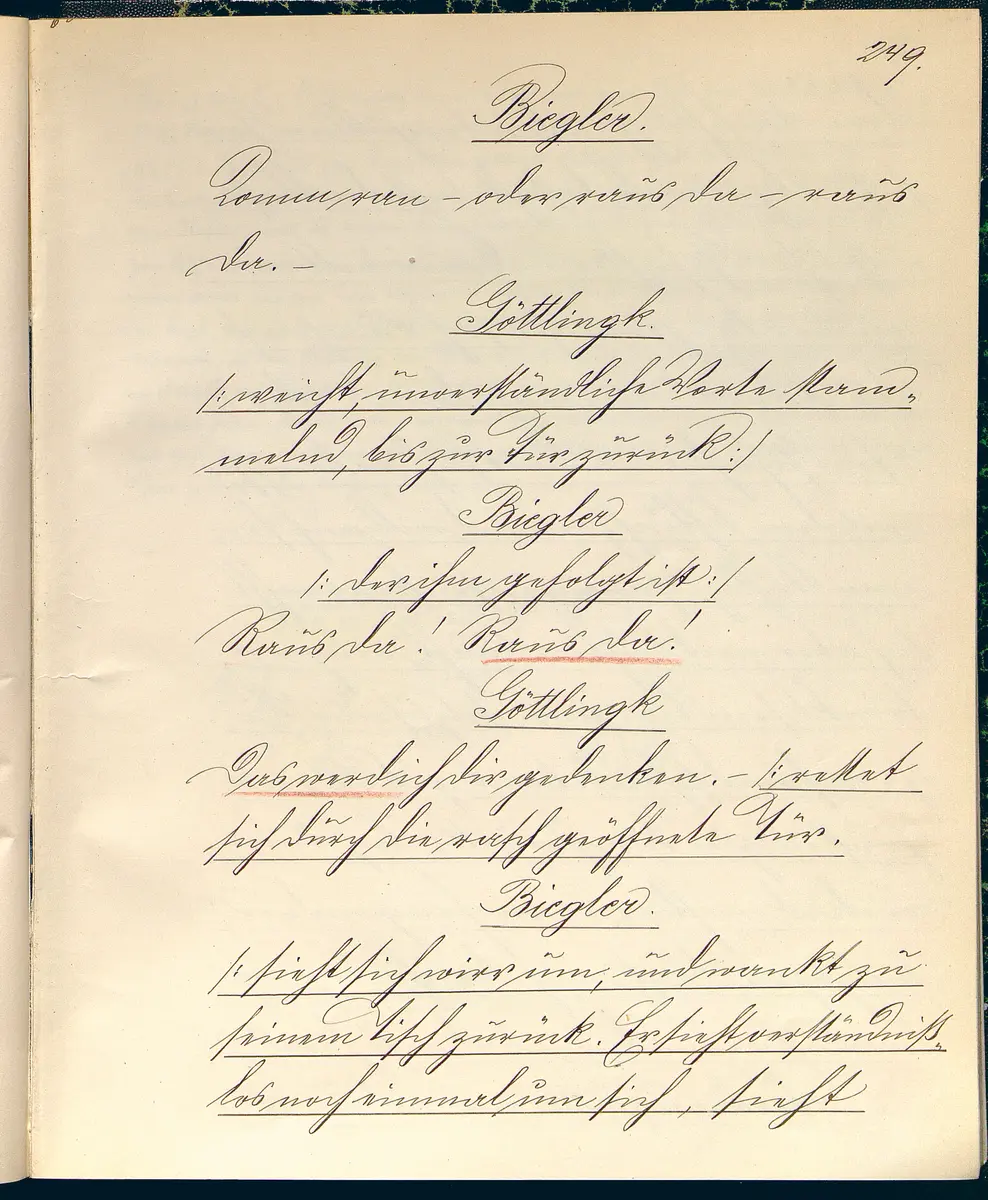 249.
Biegler.
Komm ran – oder raus da – raus
da. –
Göttlingk.
/: weicht, unverständliche Worte stam-
melnd, bis zur Tür zurück :/
Biegler
/: der ihm gefolgt ist :/
Raus da! Raus da!
Göttlingk
Das werd ich dir gedenken. – /: rettet
sich durch die rasch geöffnete Tür.
Biegler.
/: sieht sich wirr um, und wankt zu
seinem Tisch zurück. Er sieht verständniß-
los noch einmal um sich, sieht